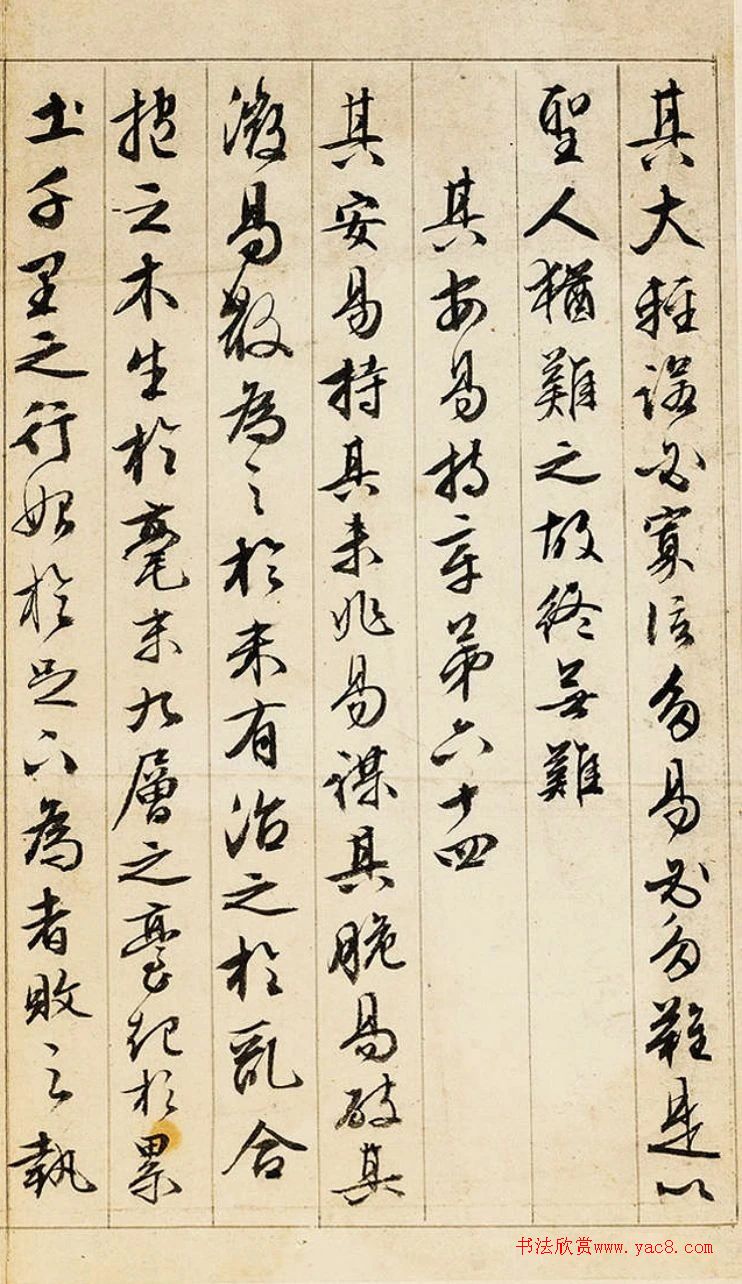 其大輕諾必寡信多易必多難是以
聖人猶難之故終無難
其安易持章第六十四
其安易持其未兆易謀其脆易破其
微易散為之於未有治之於亂合
抱之木生於毫末九層之臺起於累
土千里之行始於足下為者敗之執
书法欣赏www.yac8.com